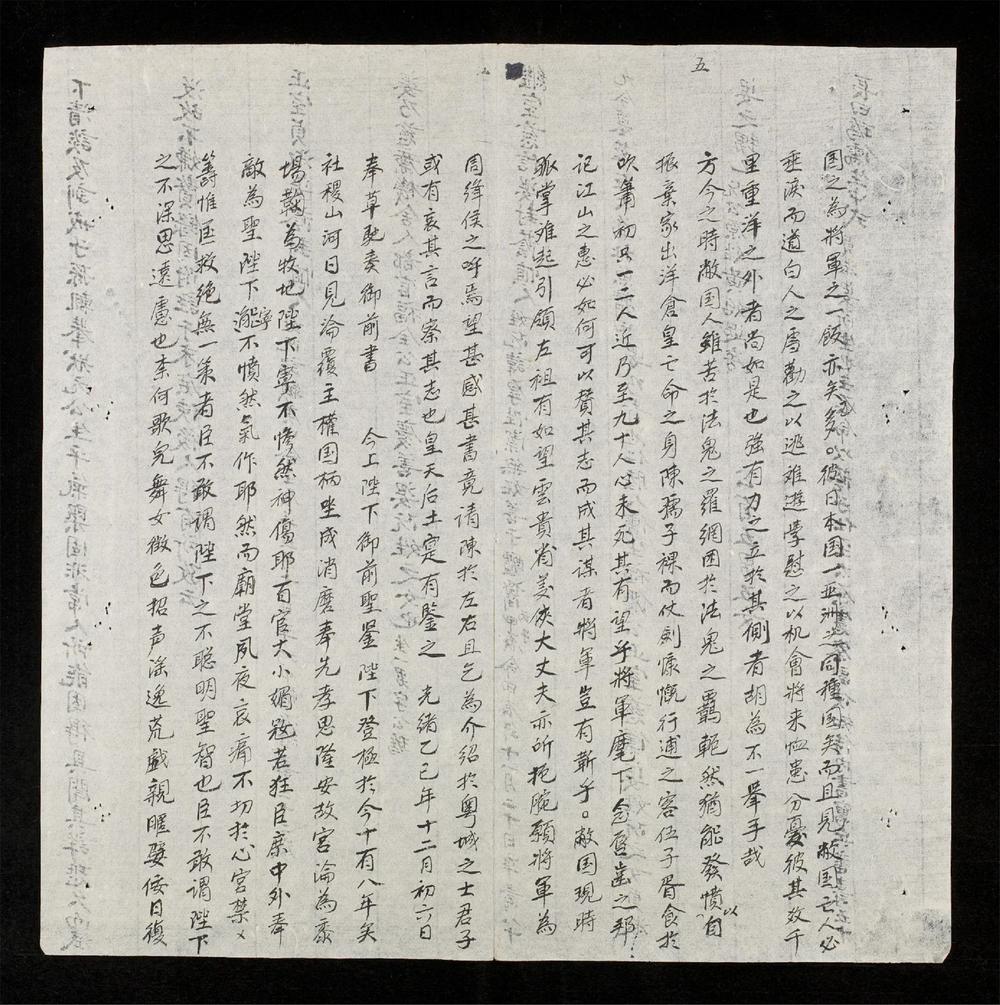 五
国之為將軍之一飯亦矣多。彼日本国一亜洲之同種国矣而且見敝国亡人必
垂涙而道白人之虐勸之以逃难遊學慰之以机會將来恤患分憂彼其数千
里重洋之外者尚如是也強有力之立於其側者胡為不一舉手哉
方今之時敝国人雖苦於法鬼之羅網困於法鬼之羈軛然猶能發憤以自
振弃家出洋倉皇亡命之身陳孺子裸而仗劍慷慨行逋之客伍子胥食於
吹簫初只一二人近乃至九十人心未死其有望乎將軍麾下念唇歯之邦
記江山之惠必如何可以賛其志而成其谋者將軍豈有靳乎。敝国現時
孤掌难起引領左袒有如望雲貴省美俠大丈夫亦所扼腕願將軍為
周绛侯之呼焉望甚感甚書竟请陳於左右且乞為介绍於粤城之士君子
或有哀其言而察其志也皇天后土寔有鑒之 光緒乙己年十二月初六日
奉草馳奏御前書 今上陛下御前聖鑒 陛下登極於今十有八年矣
社稷山河日見淪覆主權国柄坐成消磨奉先孝思隆安故宮淪為黍
場鞠為牧地陛下寧不惨然神傷耶百官大小媚敌若狂臣庶中外奉
敵為聖陛下寧不憤然氣作耶然而廟堂夙夜哀痛不切於心宮禁
籌惟匡救絕無一策者臣不敢謂陛下之不聡明聖智也臣不敢謂陛下
之不深思遠慮也柰何歌兒舞女徵色招声淫逸荒戯親暱嬖倭日復